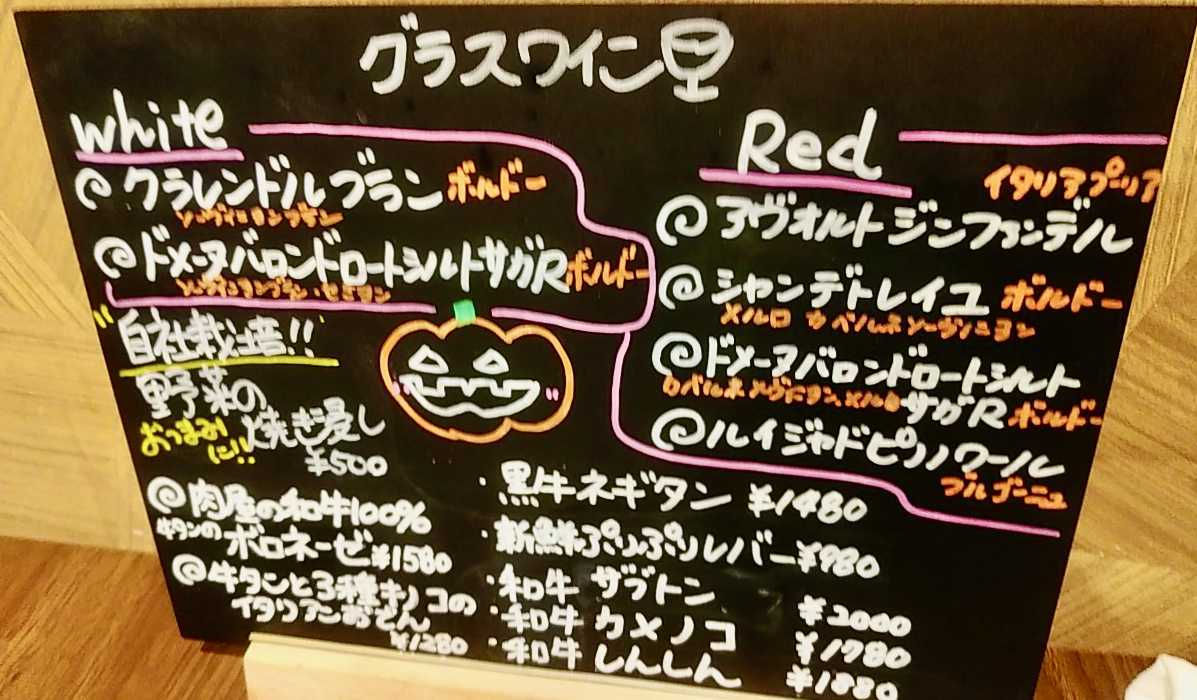 グラスワイン
white
クラレンドルブラン ボルドー
ソーヴィニヨンブラン
ドメーヌバロンドロートシルトサガR ボルドー
ソーヴィニヨンブラン・セミヨン
Red
イタリアプーリア
アヴォルトジンファンデル
シャンデトレイユ ボルドー
メルロ カベルネソーヴィニヨン
ドメーヌバロンドロートシルト
サガR ボルドー
ルイジャドピノノワール
ブルゴーニュ
"自社栽培!!"
野菜の
焼き浸し
おつまみに!!
¥500
肉屋の和牛100%
牛タンの ボロネーゼ ¥1580
牛タンと3種キノコの
イタリアンおでん
¥1280
・黒牛ネギタン ¥1480
・新鮮ぷりぷりレバー ¥980
・和牛 ザブトン ¥2000
・和牛 カメノコ ¥1780
・和牛 しんしん ¥1880